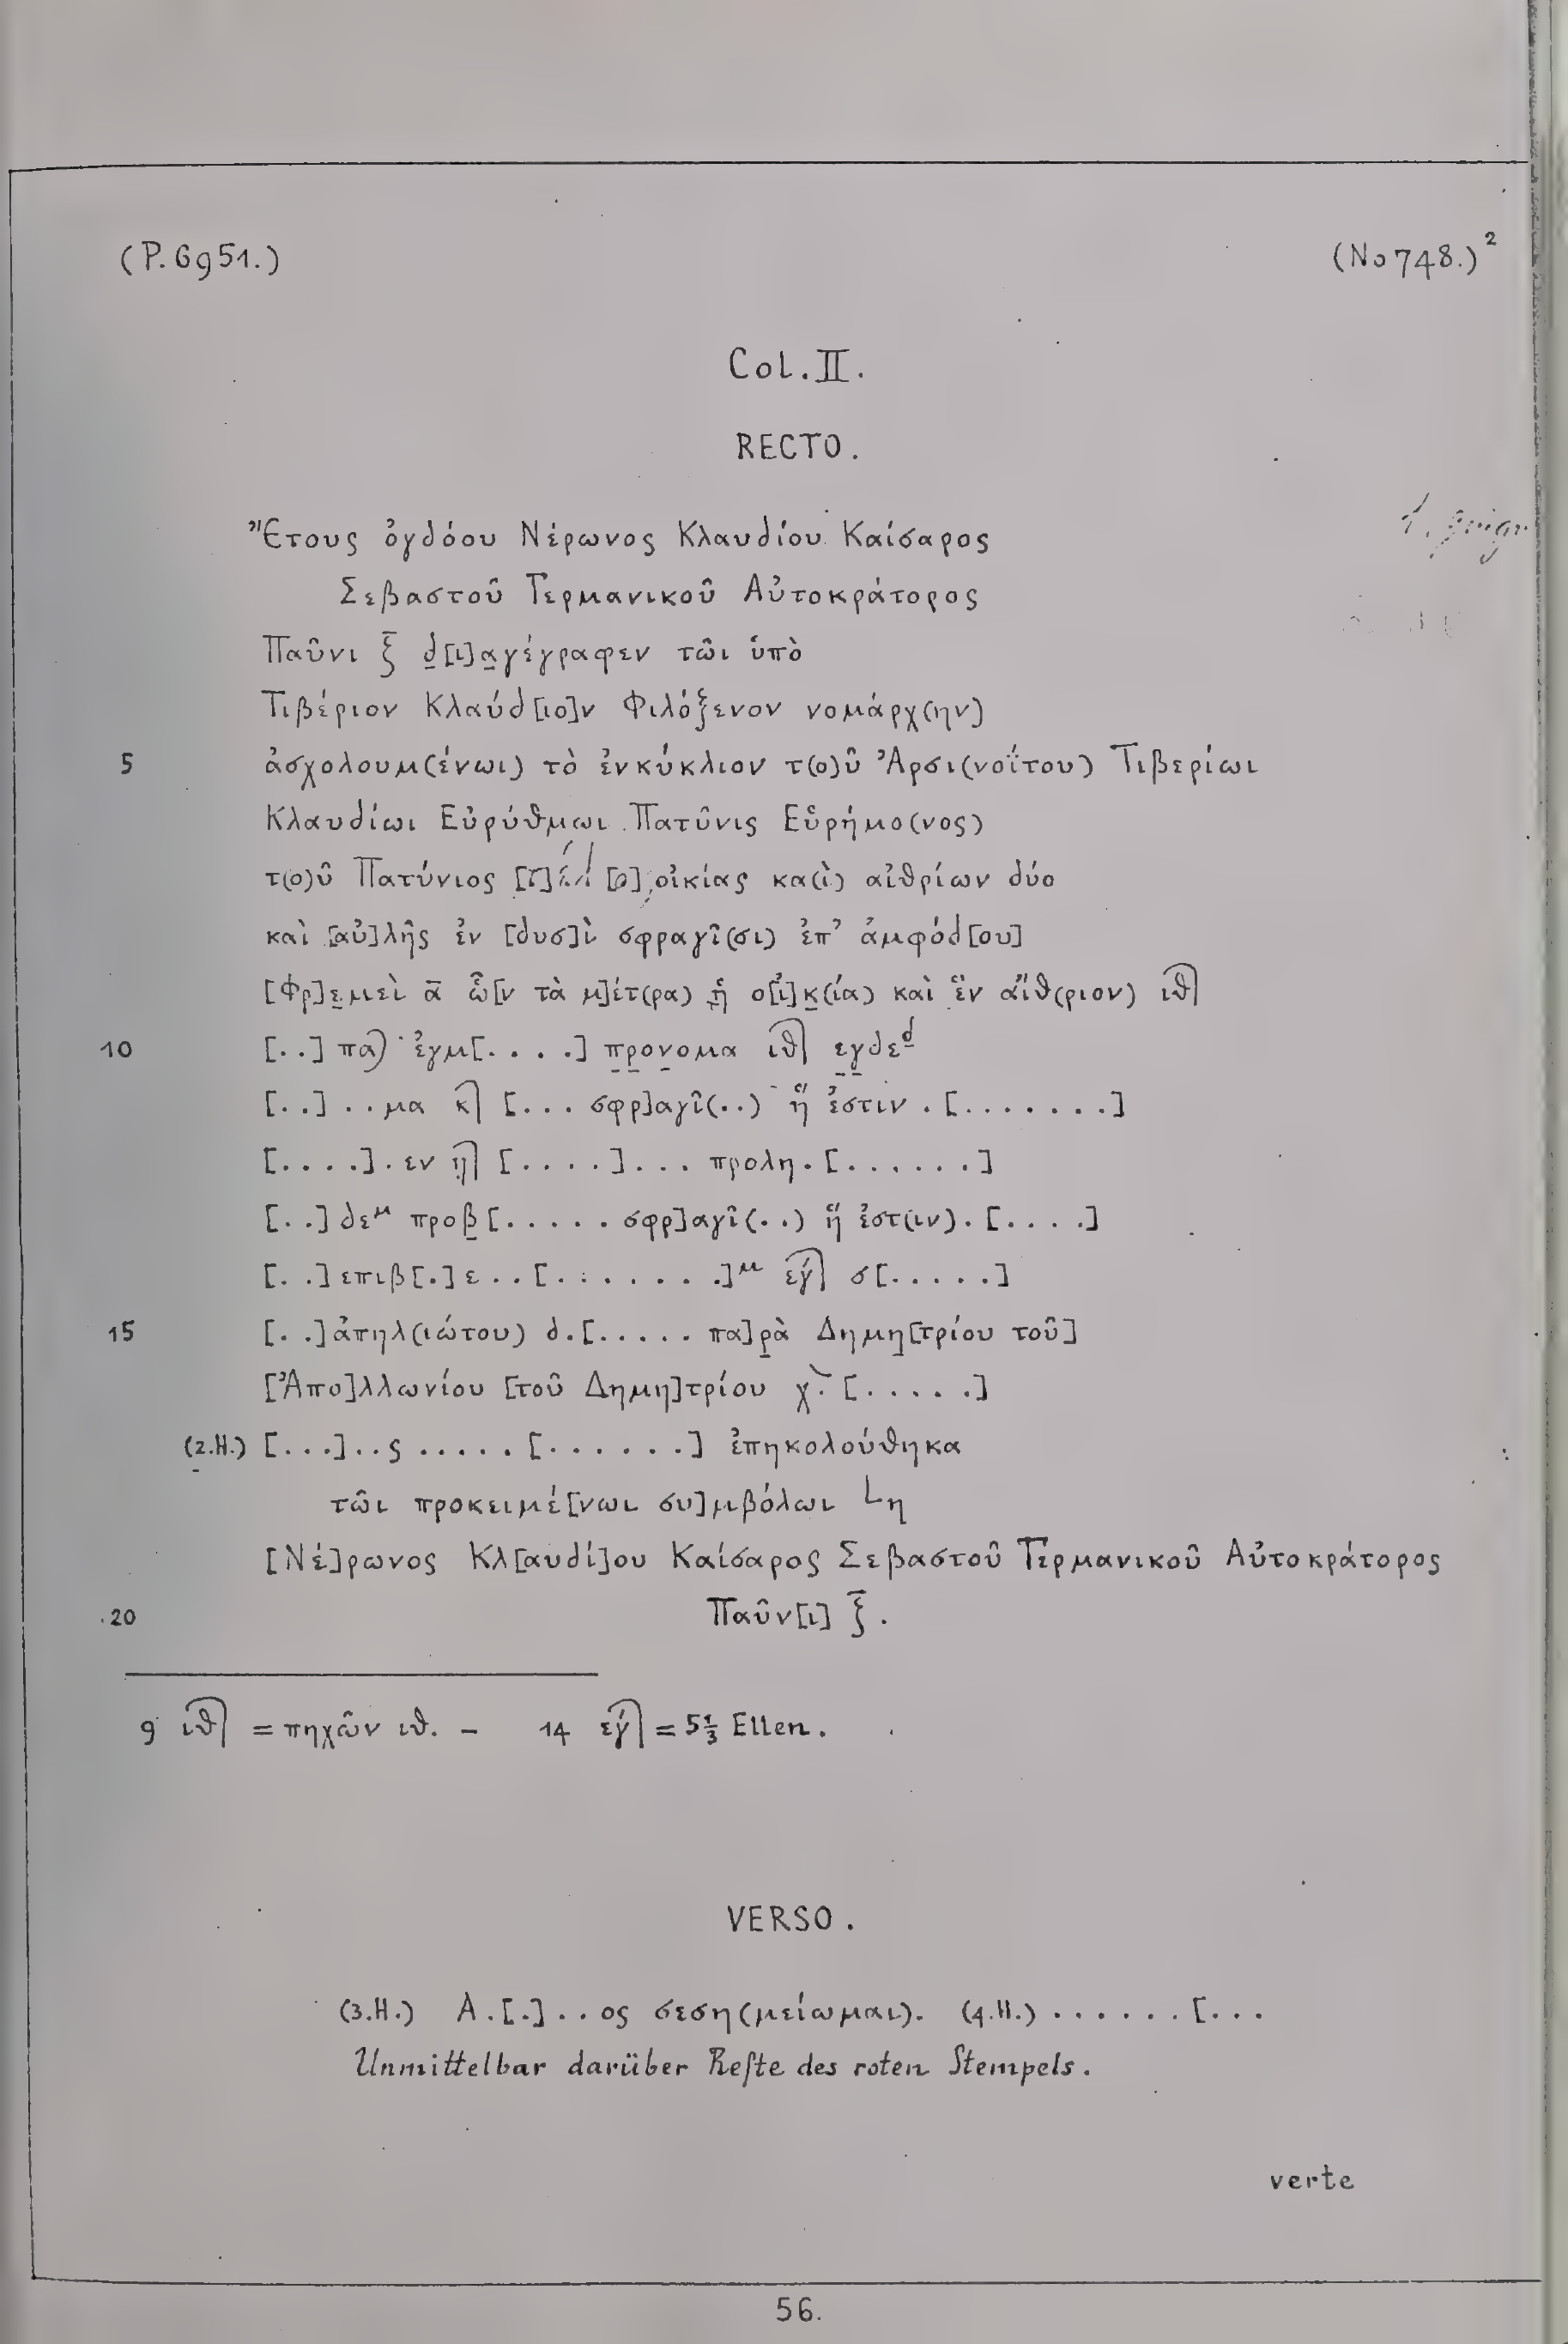 (P. 6951.) (No 748.)²
Col. II.
RECTO.
Ἔτους ὀγδόου Νέρωνος Κλαυδίου Καίσαρος
Σεβαστοῦ Γερμανικοῦ Αὐτοκράτορος
Παῦνι ξ̄ δ̲[ι]α̲γέγραφεν τῶι ὑπὸ
Τιβέριον Κλαύδ[ιο]ν Φιλόξενον νομάρχ(ην)
5 ἀσχολουμ(ένωι) τὸ ἐνκύκλιον τ(ο)ῦ Ἀρσι(νοΐτου) Τιβερίωι
Κλαυδίωι Εὐρύθμωι Πατῦνις Εὑρήμο(νος)
τ(ο)ῦ Πατύνιος οἰκίας κα(ὶ) αἰθρίων δύο
καὶ [αὐ]λῆς ἐν [δυσ]ὶ σφραγῖ(σι) ἐπ’ ἀμφόδ[ου]
[Φρ]ε̲μεὶ ᾱ ὧ[ν τὰ μ]έτ(ρα) ἡ ο[ἰ]κ̲(ία) καὶ ἓν αἴθ(ριον) ιθ
10 [..] πα) ἐγμ[. . . .] π̲ρ̲ον̲ομα ιθ ε̲γ̲δεᵈ
[..] . . μα κ [. . . σφρ]αγῖ(..) ἥ ἐστιν . [. . . . . . .]
[. . . .] . εν η [. . . .] . . . προλη . [. . . . . .]
[..] δεᵘ προβ̲ [. . . . . σφρ]αγῖ(..) ἥ ἐστ(ιν) . [. . . .]
[. .] επιβ[.] ε . . [. . . . . . . .]ᵘ εγ́ σ[. . . . .]
15 [. .] ἀπηλ(ιώτου) δ . [. . . . . πα]ρ̲ὰ Δημη̲[τρίου τοῦ]
[Ἀπο]λλωνίου [τοῦ Δημη]τρίου χ̀ . [. . . . .]
(2.H.) [. . .] . . ς . . . . . [. . . . . .] ἐπηκολούθηκα
τῶι προκειμέ[νωι συ]μβόλωι Lη
[Νέ]ρωνος Κλ[αυδί]ου Καίσαρος Σεβαστοῦ Γερμανικοῦ Αὐτοκράτορος
20 Παῦν[ι] ξ̄ .
9 ιθ = πηχῶν ιθ. – 14 εγ́ = 5⅓ Ellen.
VERSO.
(3.H.) Α . [.] . . ος σεση(μείωμαι). (4.H.) . . . . . . [. . .
Unmittelbar darüber Reste des roten Stempels.
verte
56.